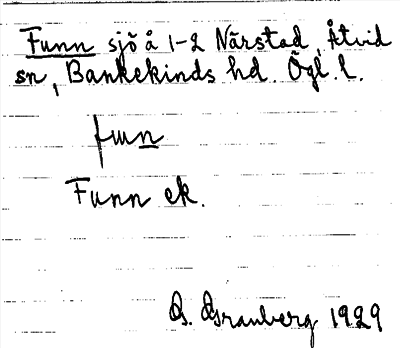 Funn sjö å 1-2 Närstad, Åtvid
sn, Bankekinds hd. Ögl. l.
Funn ek.
G. Granberg 1929